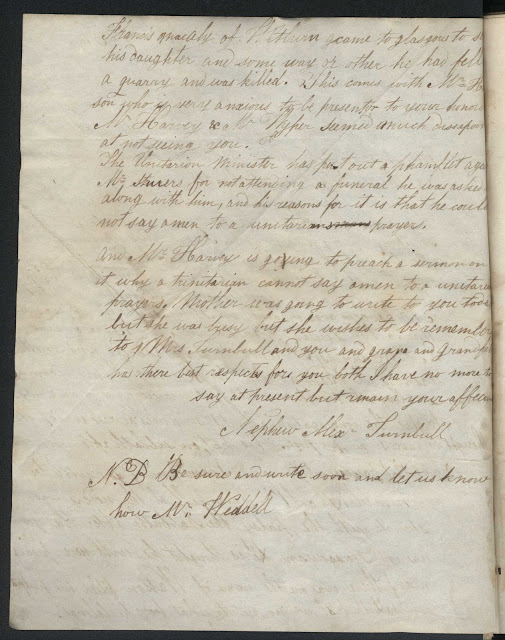 Francis quaely of Pitburn came to glasgow to s
his daughter and some way or other he had fell
a quarry and was killed. This comes with Mr. H
son who is very anxious to be present to your honou
Mr Harvey & Mr Wyper seemed much disappoin
at not seeing you.
The Unitarion Minister has put out a phamlet aga
Mr. for not attending a funeral he was asked
along with him, and his reasons for it is that he could
not say amen to a unitarian prayer.
and Mr. Harvey is going to preach a sermon on
it why a trinitarian cannot say amen to a unitarian
prayers. Mother was gang to write to you too
but she was busy but she wishes to be remember
to Mrs. Turnbull and you and grapa and Grand
has there best respects for you both I have no more to
say at present but remain your affect
Nephew Alex Turnbull
N. B Be sure and write soon and let us know
how Mr. Weddell